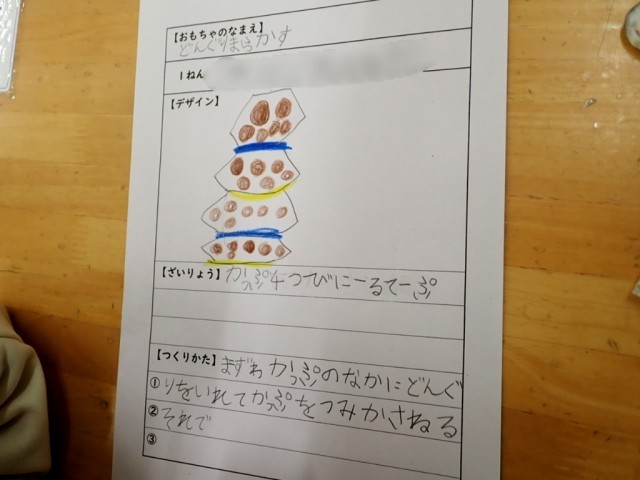 【おもちゃのなまえ】
どんぐりまらかす
1ねん
【デザイン】
【ざいりょう】かっぷ4つびにーるてーぷ
【つくりかた】まずわかっぷのなかにどんぐ
① りをいれてかっぷをつみかさねる
② それで
③